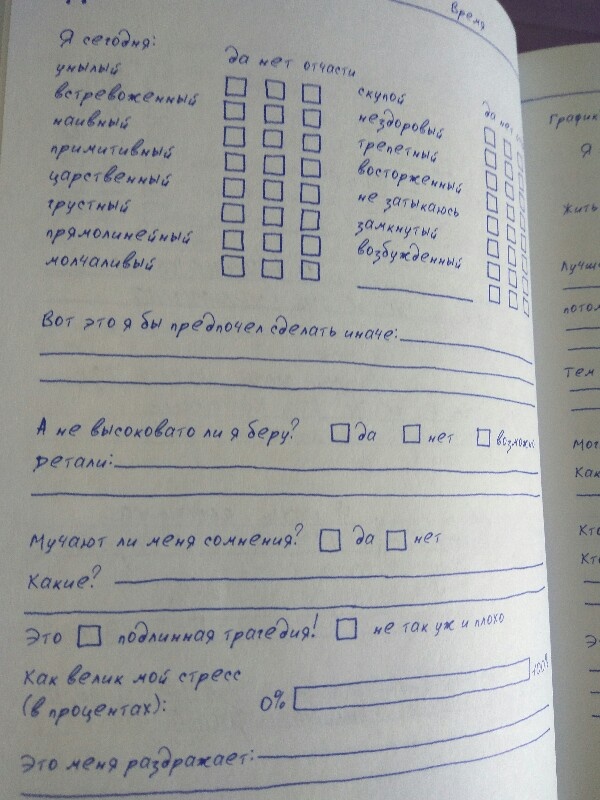 Время
Я сегодня:
да нет отчасти
унылый
встревоженный
наивный
примитивный
царственный
грустный
прямолинейный
молчаливый
да нет
скупой
нездоровый
трепетный
восторженный
не затыкаюсь
замкнутый
возбужденный
Вот это я бы предпочел сделать иначе:
А не высоковато ли я беру? да нет возможн
детали:
Мучают ли меня сомнения? да нет
Какие?
Это подлинная трагедия! не так уж и плохо
Как велик мой стресс
(в процентах): 0% 100%
Это меня раздражает:
График
Я
Жить
Лучш
потом
Тем
Мог
Как
Кто
Кто
Э